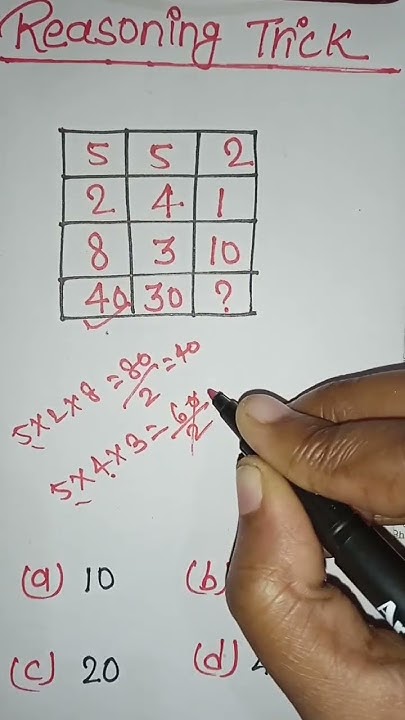 Reasoning Trick
5 5 2
2 4 1
8 3 10
40 30 ?
5×2×8=80/2=40
5×4×3=60/2
(a) 10 (b)
(c) 20 (d)